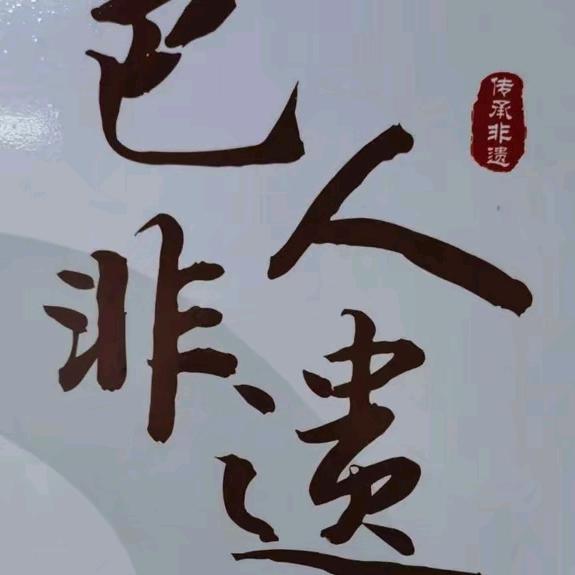 巴人
非遗
传承非遗